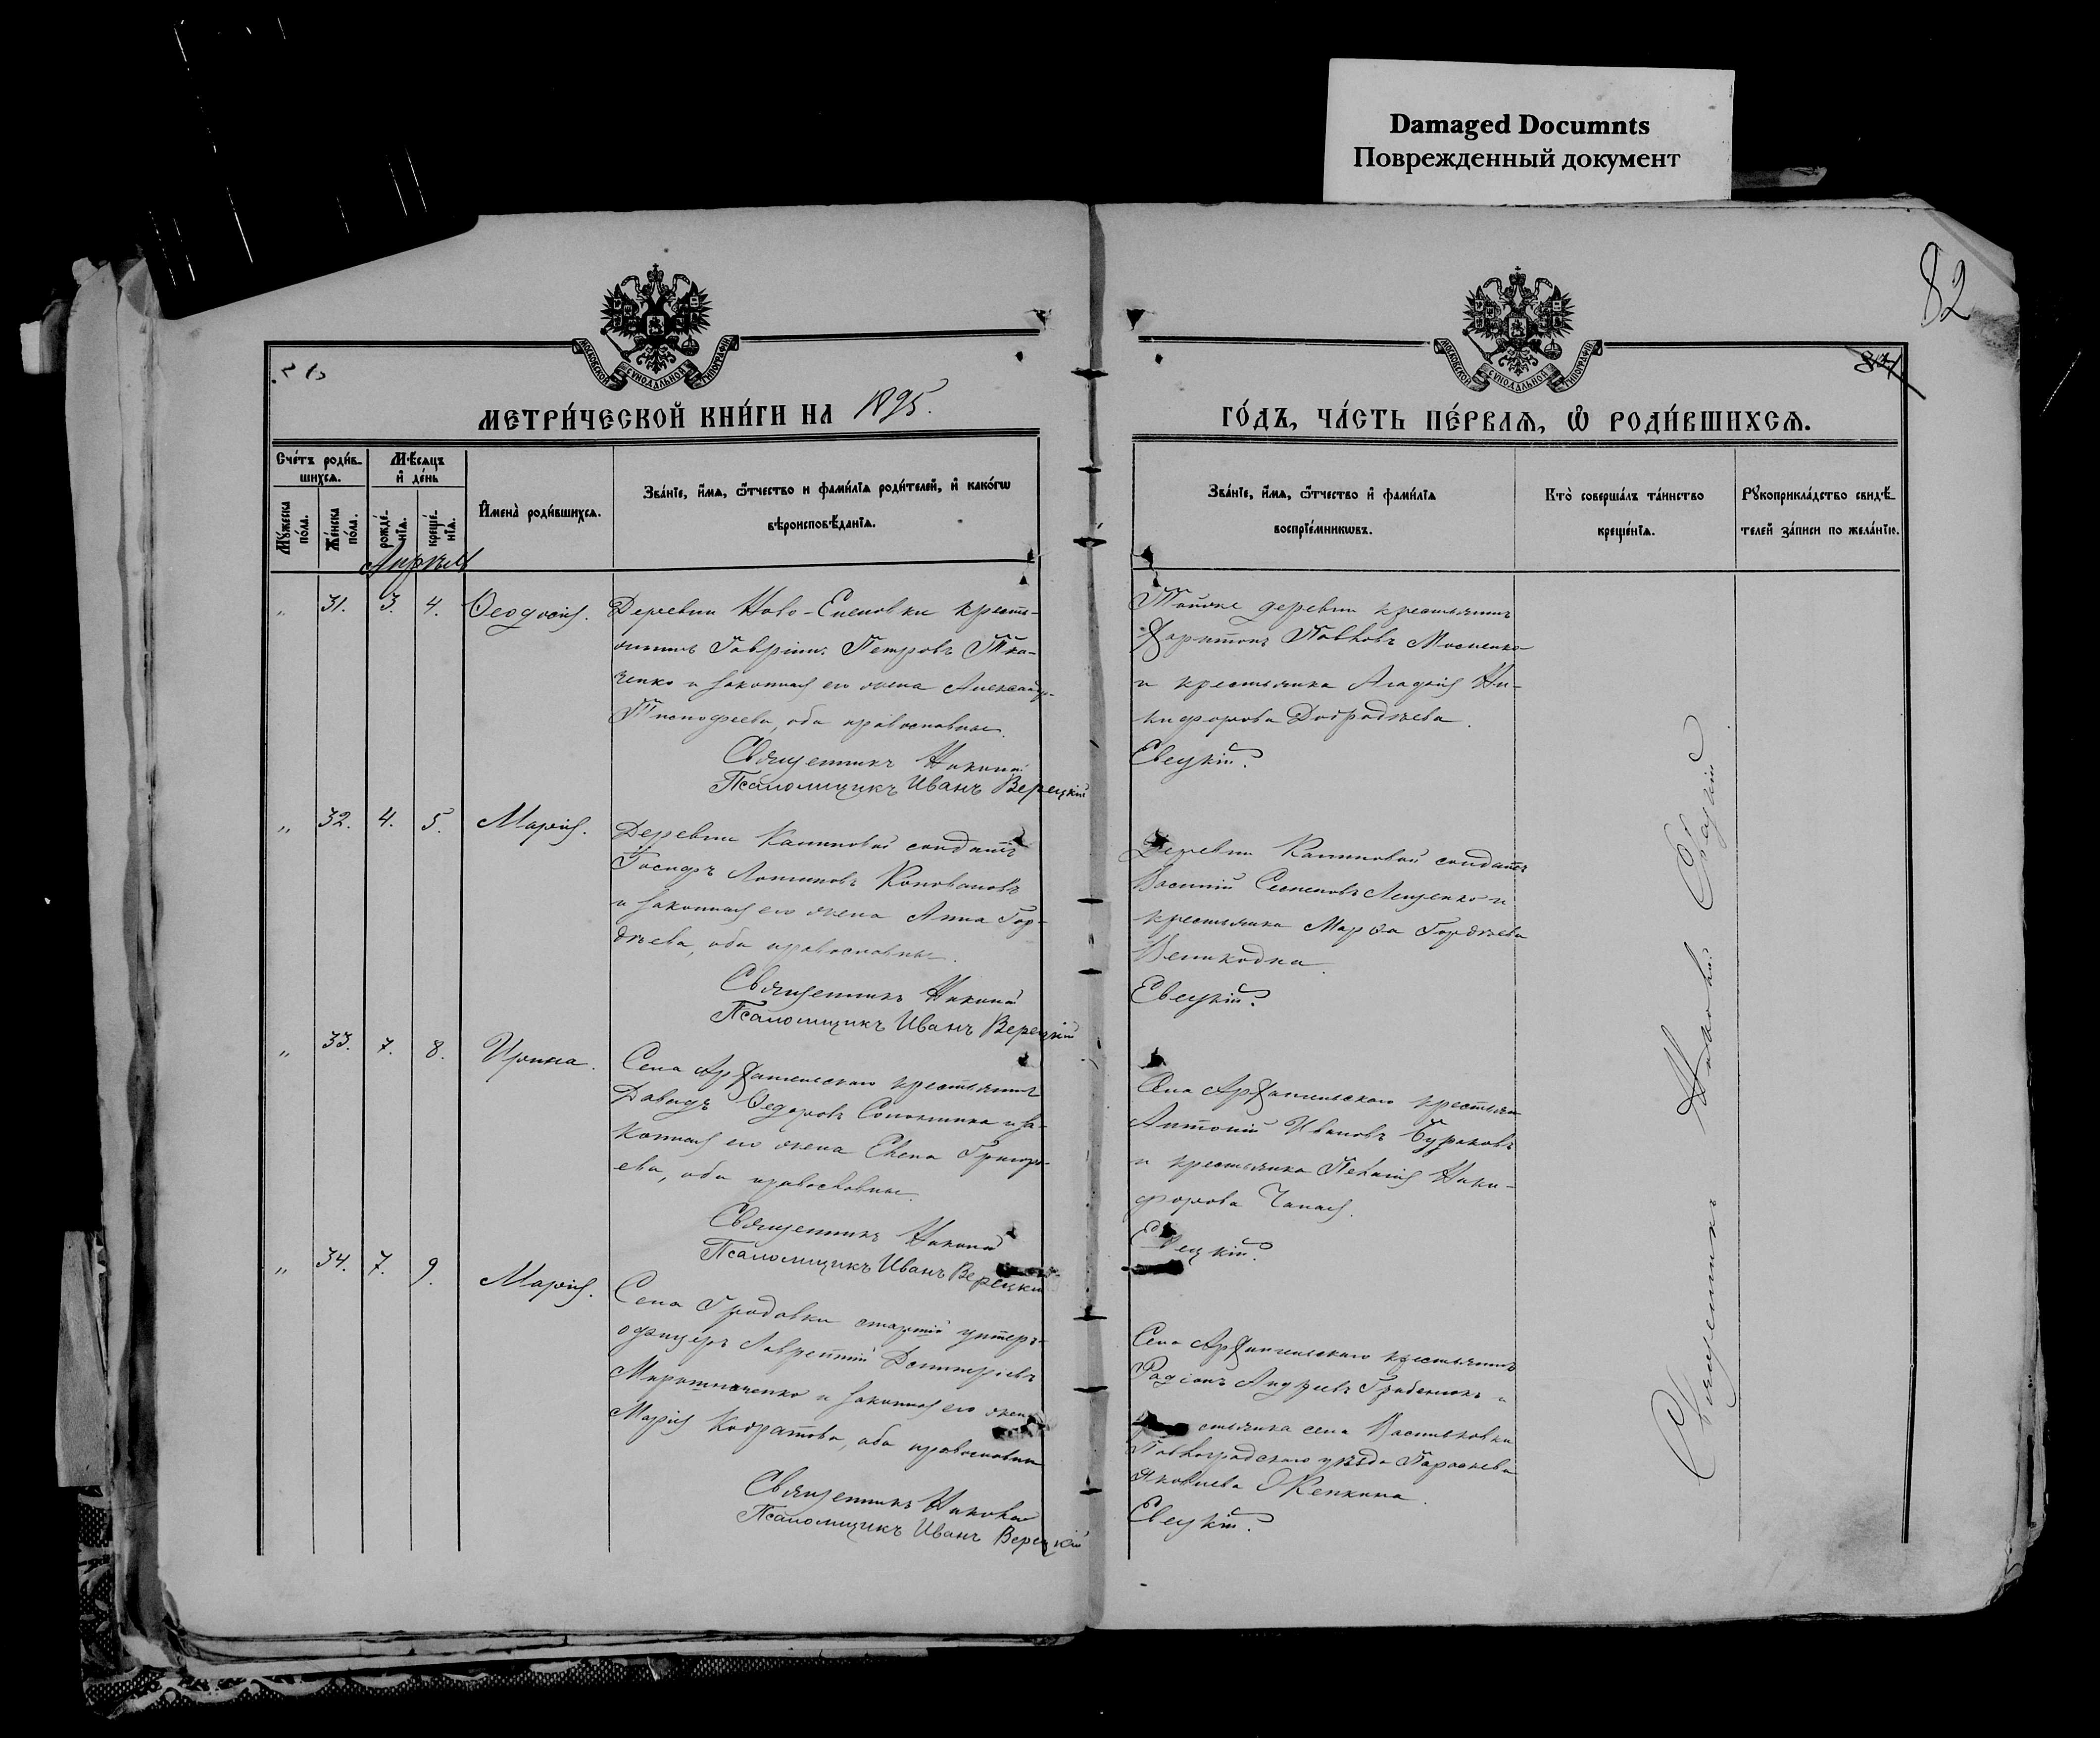 Damaged Documnts
Поврежденный документ
82
МОСКОВСКОЙ СѴНОДАЛЬНОЙ ТИПОГРАФІИ
МОСКОВСКОЙ СѴНОДАЛЬНОЙ ТИПОГРАФІИ
МЕТРИ́ЧЕСКОЙ КНИ́ГИ НА 1895.
ГО́ДЪ, ЧА́СТЬ ПЕ́РВАѦ, Ѡ РОДИ́ВШИХСѦ.
Сче́тъ роди́в-
шихсѧ.
Мꙋ́жеска по́ла.
Же́нска по́ла.
Мѣ́сѧцъ и҆ де́нь
рожде́-нїѧ.
креще́-нїѧ.
И҆мена̀ роди́вшихсѧ.
Зва́нїе, и҆́мѧ, ѻ҆́тчество и фами́лїѧ роди́телей, и҆ како́гѡ
вѣроисповѣ́данїѧ.
Зва́нїе, и҆́мѧ, ѻ҆́тчество и҆ фами́лїѧ
воспрїе́мникѡвъ.
Кто̀ соверша́лъ та́инство
креще́нїѧ.
Рꙋкоприкла́дство свидѣ́-
телей за́писи по жела́нїю.
Апрѣль
„ 31. 3. 4. Ѳеодосія.
Деревни Ново-Еленовки кресть-
янинъ Гавріилъ Петровъ Тка-
ченко и законная его жена Александра
Тимофеева, оба православные.
Священникъ Николай
Псаломщикъ Иванъ Верецкій
Тойже деревни крестьянинъ
Харитонъ Павловъ Мосненко
и крестьянка Агафія Ни-
кифорова
Евецкій.
„ 32. 4. 5. Марія.
Деревни Калиновой солдатъ
Іосифъ Логиновъ Коноваловъ
и законная его жена Анна Гор-
дѣева, оба православные.
Священникъ Николай
Псаломщикъ Иванъ Верецкій
Деревни Калиновой солдатъ
Василій Семеновъ Лещенко и
крестьянка Марѳа Гордѣева
Великодна.
Евецкій.
„ 33. 7. 8. Ирина.
Села Архангельскаго крестьянинъ
Давидъ Ѳедоровъ и за-
конная его жена Елена Григорь-
ева, оба православные.
Священникъ Николай
Псаломщикъ Иванъ Верецкій
Села Архангельскаго крестьян
Антоній Ивановъ Бураковъ
и крестьянка Пелагія Ники-
форова Чалая.
Евецкій.
„ 34. 7. 9. Марія.
Села Гродовки старшій унтеръ-
офицеръ Лаврентій Димитріевъ
Мирошниченко и законная его жена
Марія Кодратова, оба православные
Священникъ Николай
Псаломщикъ Иванъ Верецкій
Села Архангельскаго крестьянинъ
Родіонъ Андреевъ Гребенюкъ и
стьянка села Васильковки
Павлоградскаго уѣзда Параскева
Яковлева
Евецкій.
Священникъ Николай Евецкій